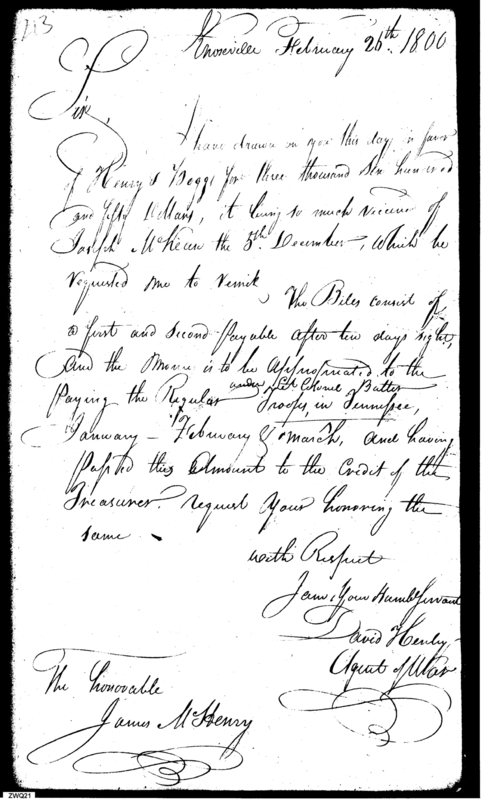 213
Knoxville February 26th. 1800
Sir,
I have drawn on you this day in favor
of Henry & Boggs for three thousand Six hundred
and fifty Dollars, it being so much received of
Joseph McKean the 5th. December, which he
requested me to remit,
The Bills consist of
a first and Second payable after ten days sight,
and the Money is to be appropriated to the
Paying the Regular Troops in Tennessee,
under Lt Colonel Butler
January - February & March, and having
passed the amount to the Credit of the
Treasurer. request your honoring the
same
with Respect
I am, Your Humbl Servant
David Henley
Agent of War
The honorable
James McHenry
ZWQ21